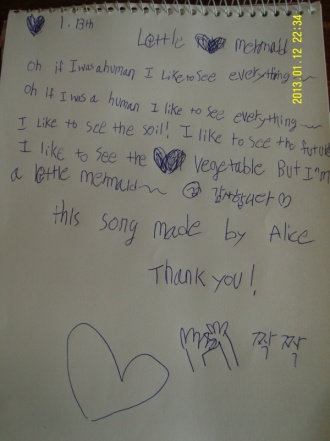 1. 13th
Lettle mermaid
Oh if I was a human I Like to See everything~
Oh if I was a human I like to see everything~
I Like to see the soil! I like to see the future
I like to see the vegetable But I'm
a lettle mermaid~ 감사합니다
this song made by Alice
Thank you!
짝 짝
2013.01.12 22:34